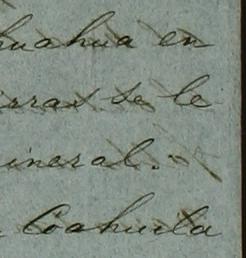 huahua en
rras se le
ineral.-
Coahuila